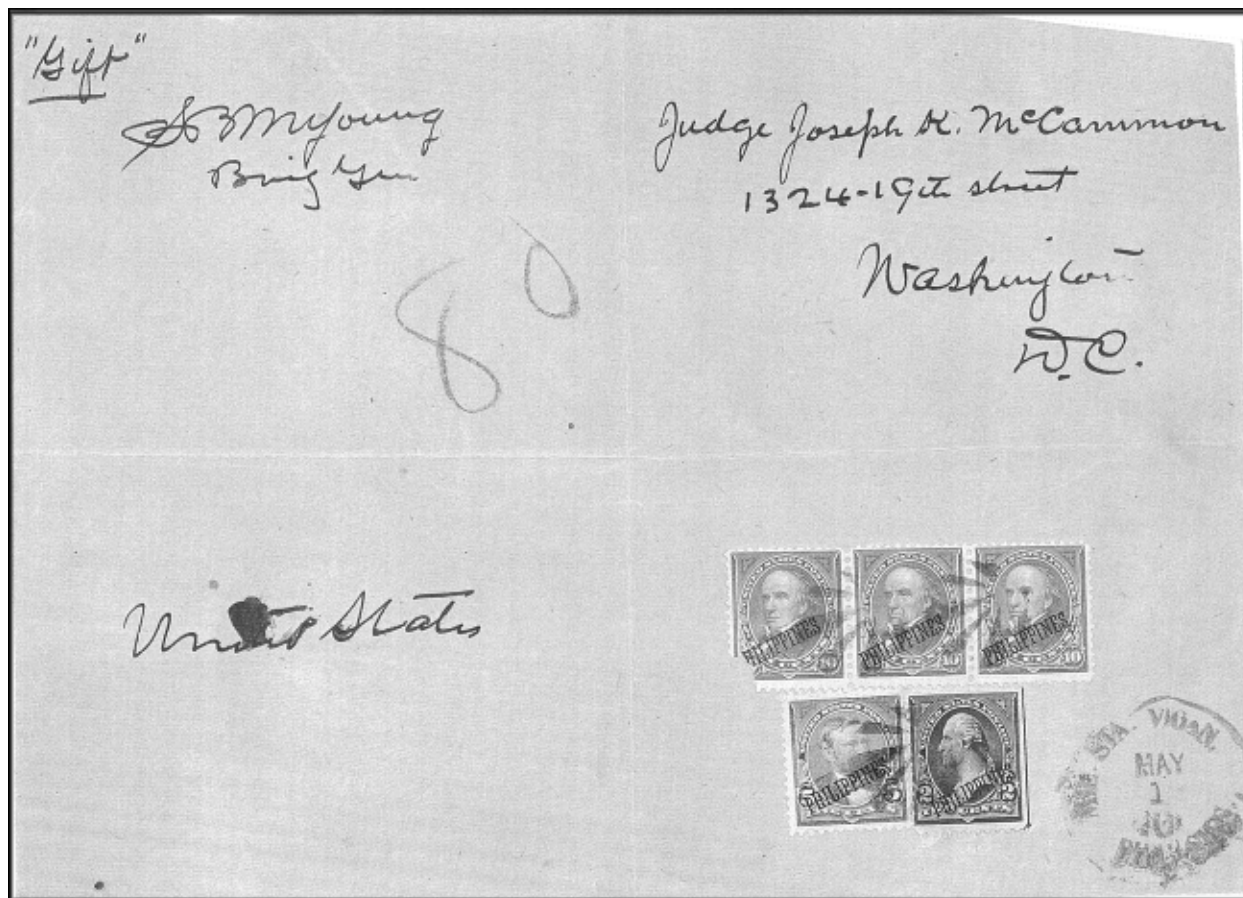 "Gift"
SBMYoung
Brig Gen
Judge Joseph K. McCammon
1324-19th street
Washington
D.C.
80
United States
PHILIPPINES 10
PHILIPPINES 10
PHILIPPINES 10
5 PHILIPPINES 5
2 PHILIPPINES 2
STA. VIGAN.
MAY
1